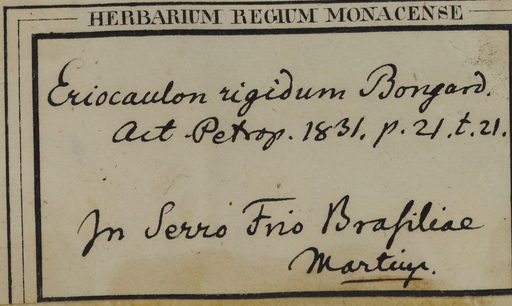 HERBARIUM REGIUM MONACENSE
Eriocaulon rigidum Bongard.
Act Petrop. 1831. p. 21. t. 21.
In Serro Frio Braſiliae
Martius.